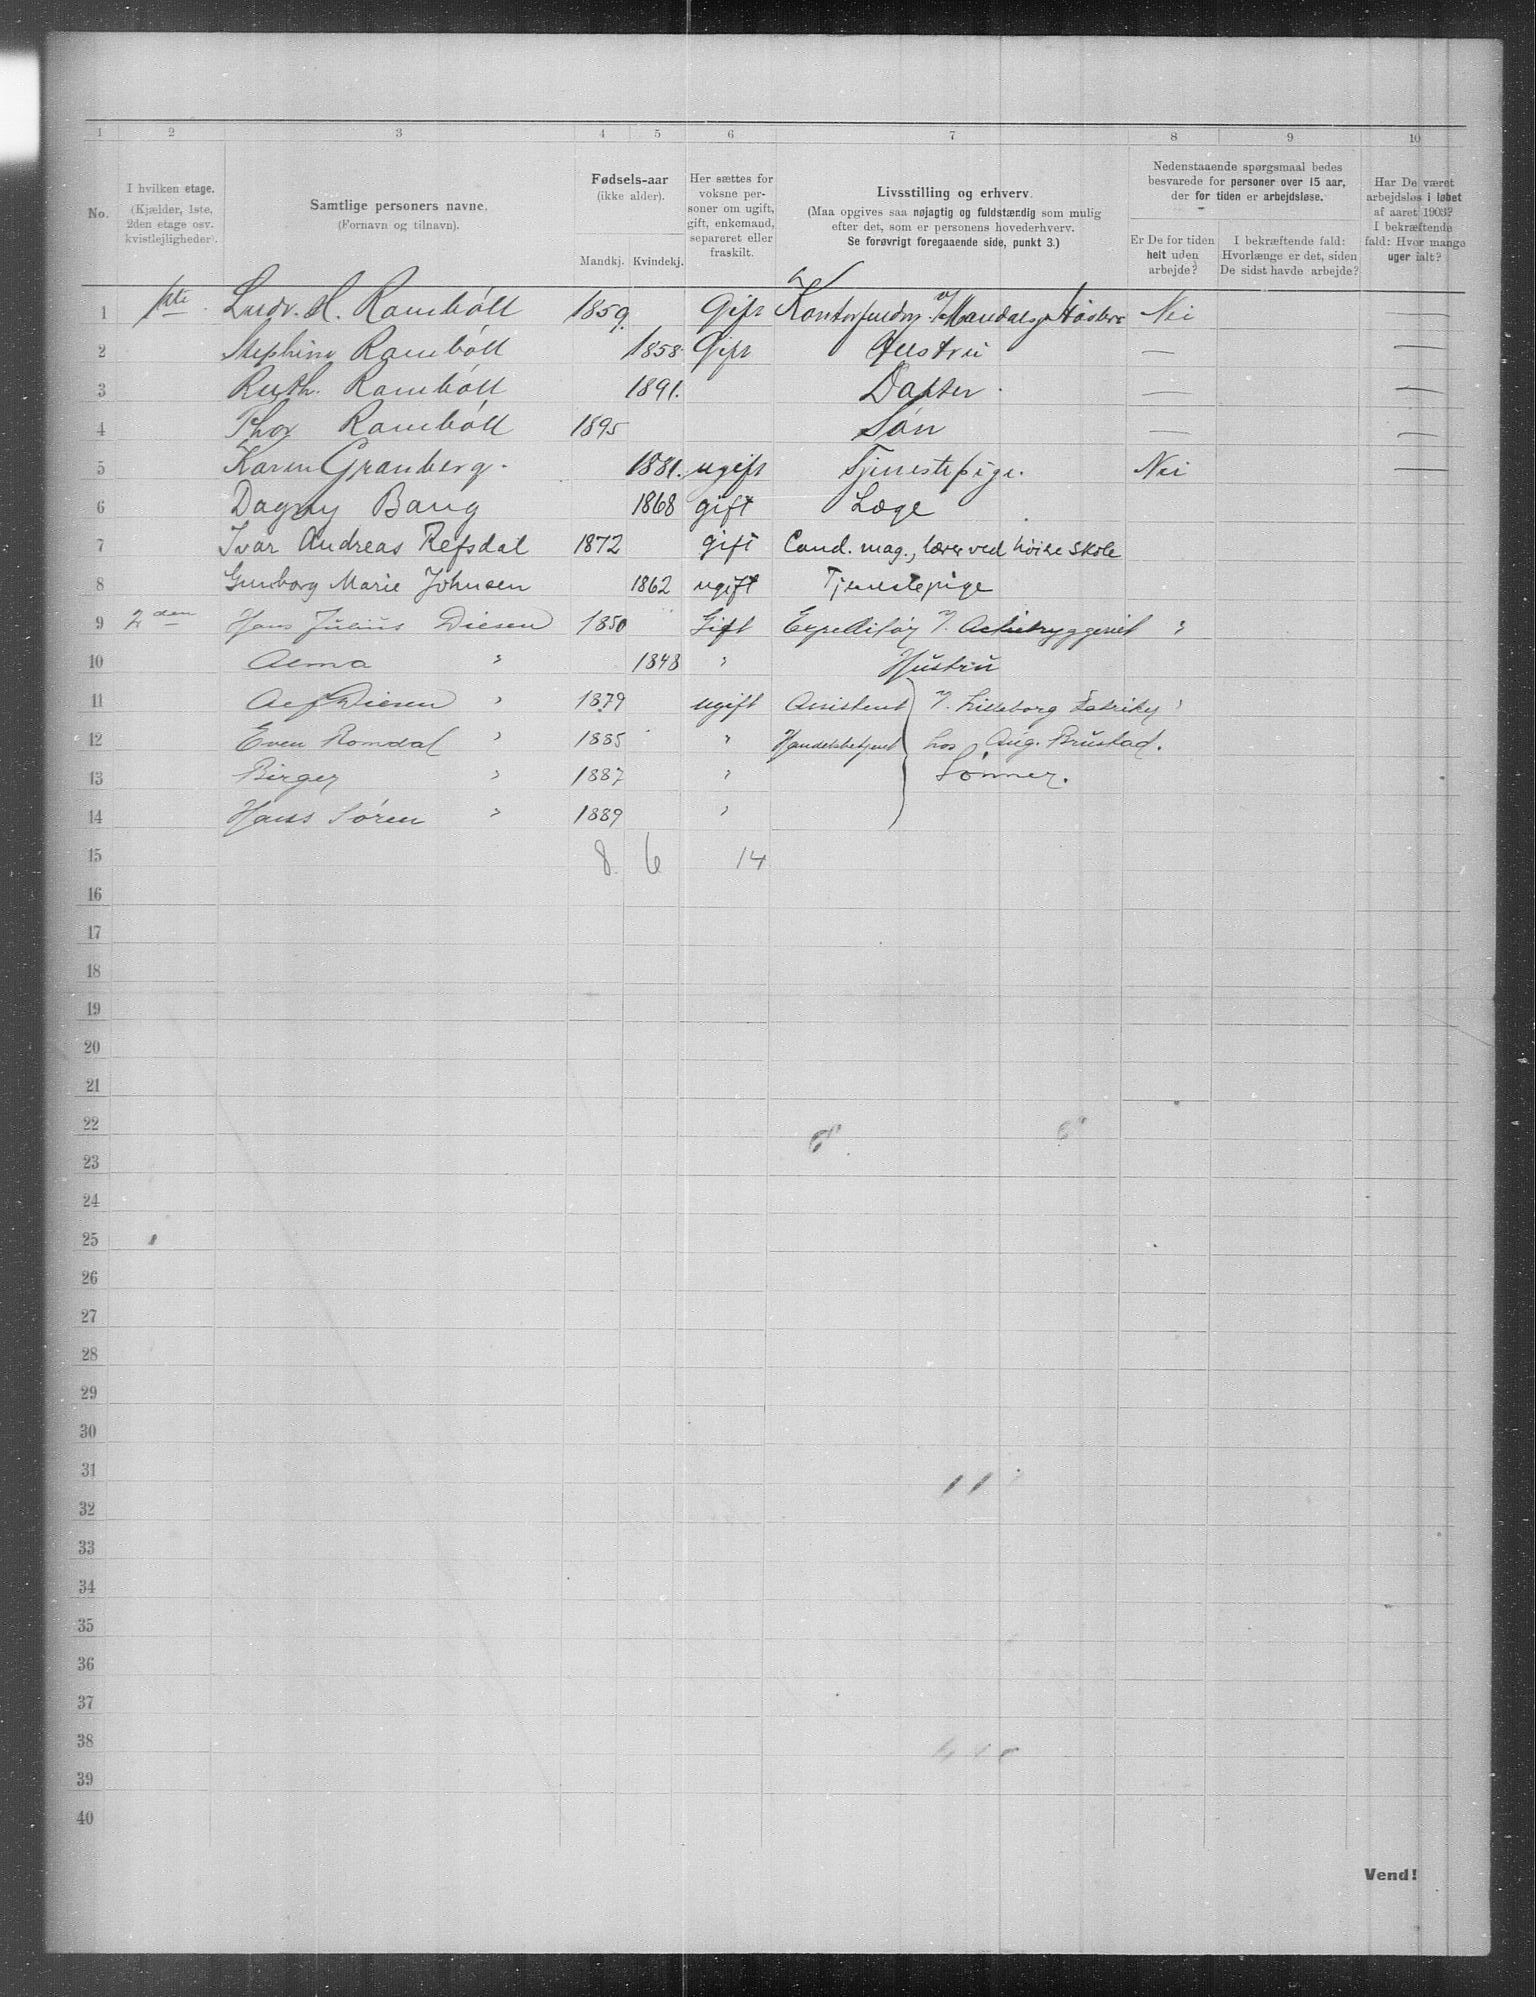 1 2 3 4 5 6 7 8 9 10
No.
I hvilken etage.
(Kjælder, 1ste,
2den etage osv.
kvistlejligheder).
Samtlige personers navne.
(Fornavn og tilnavn).
Fødsels-aar
(ikke alder).
Mandkj. Kvindekj.
Her sættes for
voksne per-
soner om ugift,
gift, enkemand,
separeret eller
fraskilt.
Livsstilling og erhverv.
(Maa opgives saa nøjagtig og fuldstændig som mulig
efter det, som er personens hovederhverv.
Se forøvrigt foregaaende side, punkt 3.)
Nedenstaaende spørgsmaal bedes
besvarede for personer over 15 aar,
der for tiden er arbejdsløse.
Er De for tiden
helt uden
arbejde?
I bekræftende fald:
Hvorlænge er det, siden
De sidst havde arbejde?
Har De været
arbejdsløs i løbet
af aaret 1903?
I bekræftende
fald: Hvor mange
uger ialt?
1 1ste Ludv. H. Rambøll 1859. Gift Nei —
2 Rambøll 1858 Gift Hustru — —
3 Ruth. Rambøll 1891. Datter — —
4 Thor Rambøll 1895 Søn — —
5 Karen Granberg. 1881. ugift Tjenestepige. Nei —
6 Dagny Bang 1868 gift Læge
7 Ivar Andreas Refsdal 1872 gift Cand. mag., lærer ved høiere skole
8 Gunborg Marie Johnsen 1862 ugift Tjenestepige
9 2den Hans Julius Diesen 1850 Gift Expeditør v. Actiebryggeriet "
10 " 1848 " Hustru
11 Diesen " 1879 ugift Assistent v. Lilleborg Fabriker "
12 Even Romdal " 1885 " Handelsbetjent hos Aug. Brustad.
13 Birger " 1887 " Sønner.
14 Hans Søren " 1889 "
15 8 6 14
16
17
18
19
20
21
22
23
24
25
26
27
28
29
30
31
32
33
34
35
36
37
38
39
40
Vend!